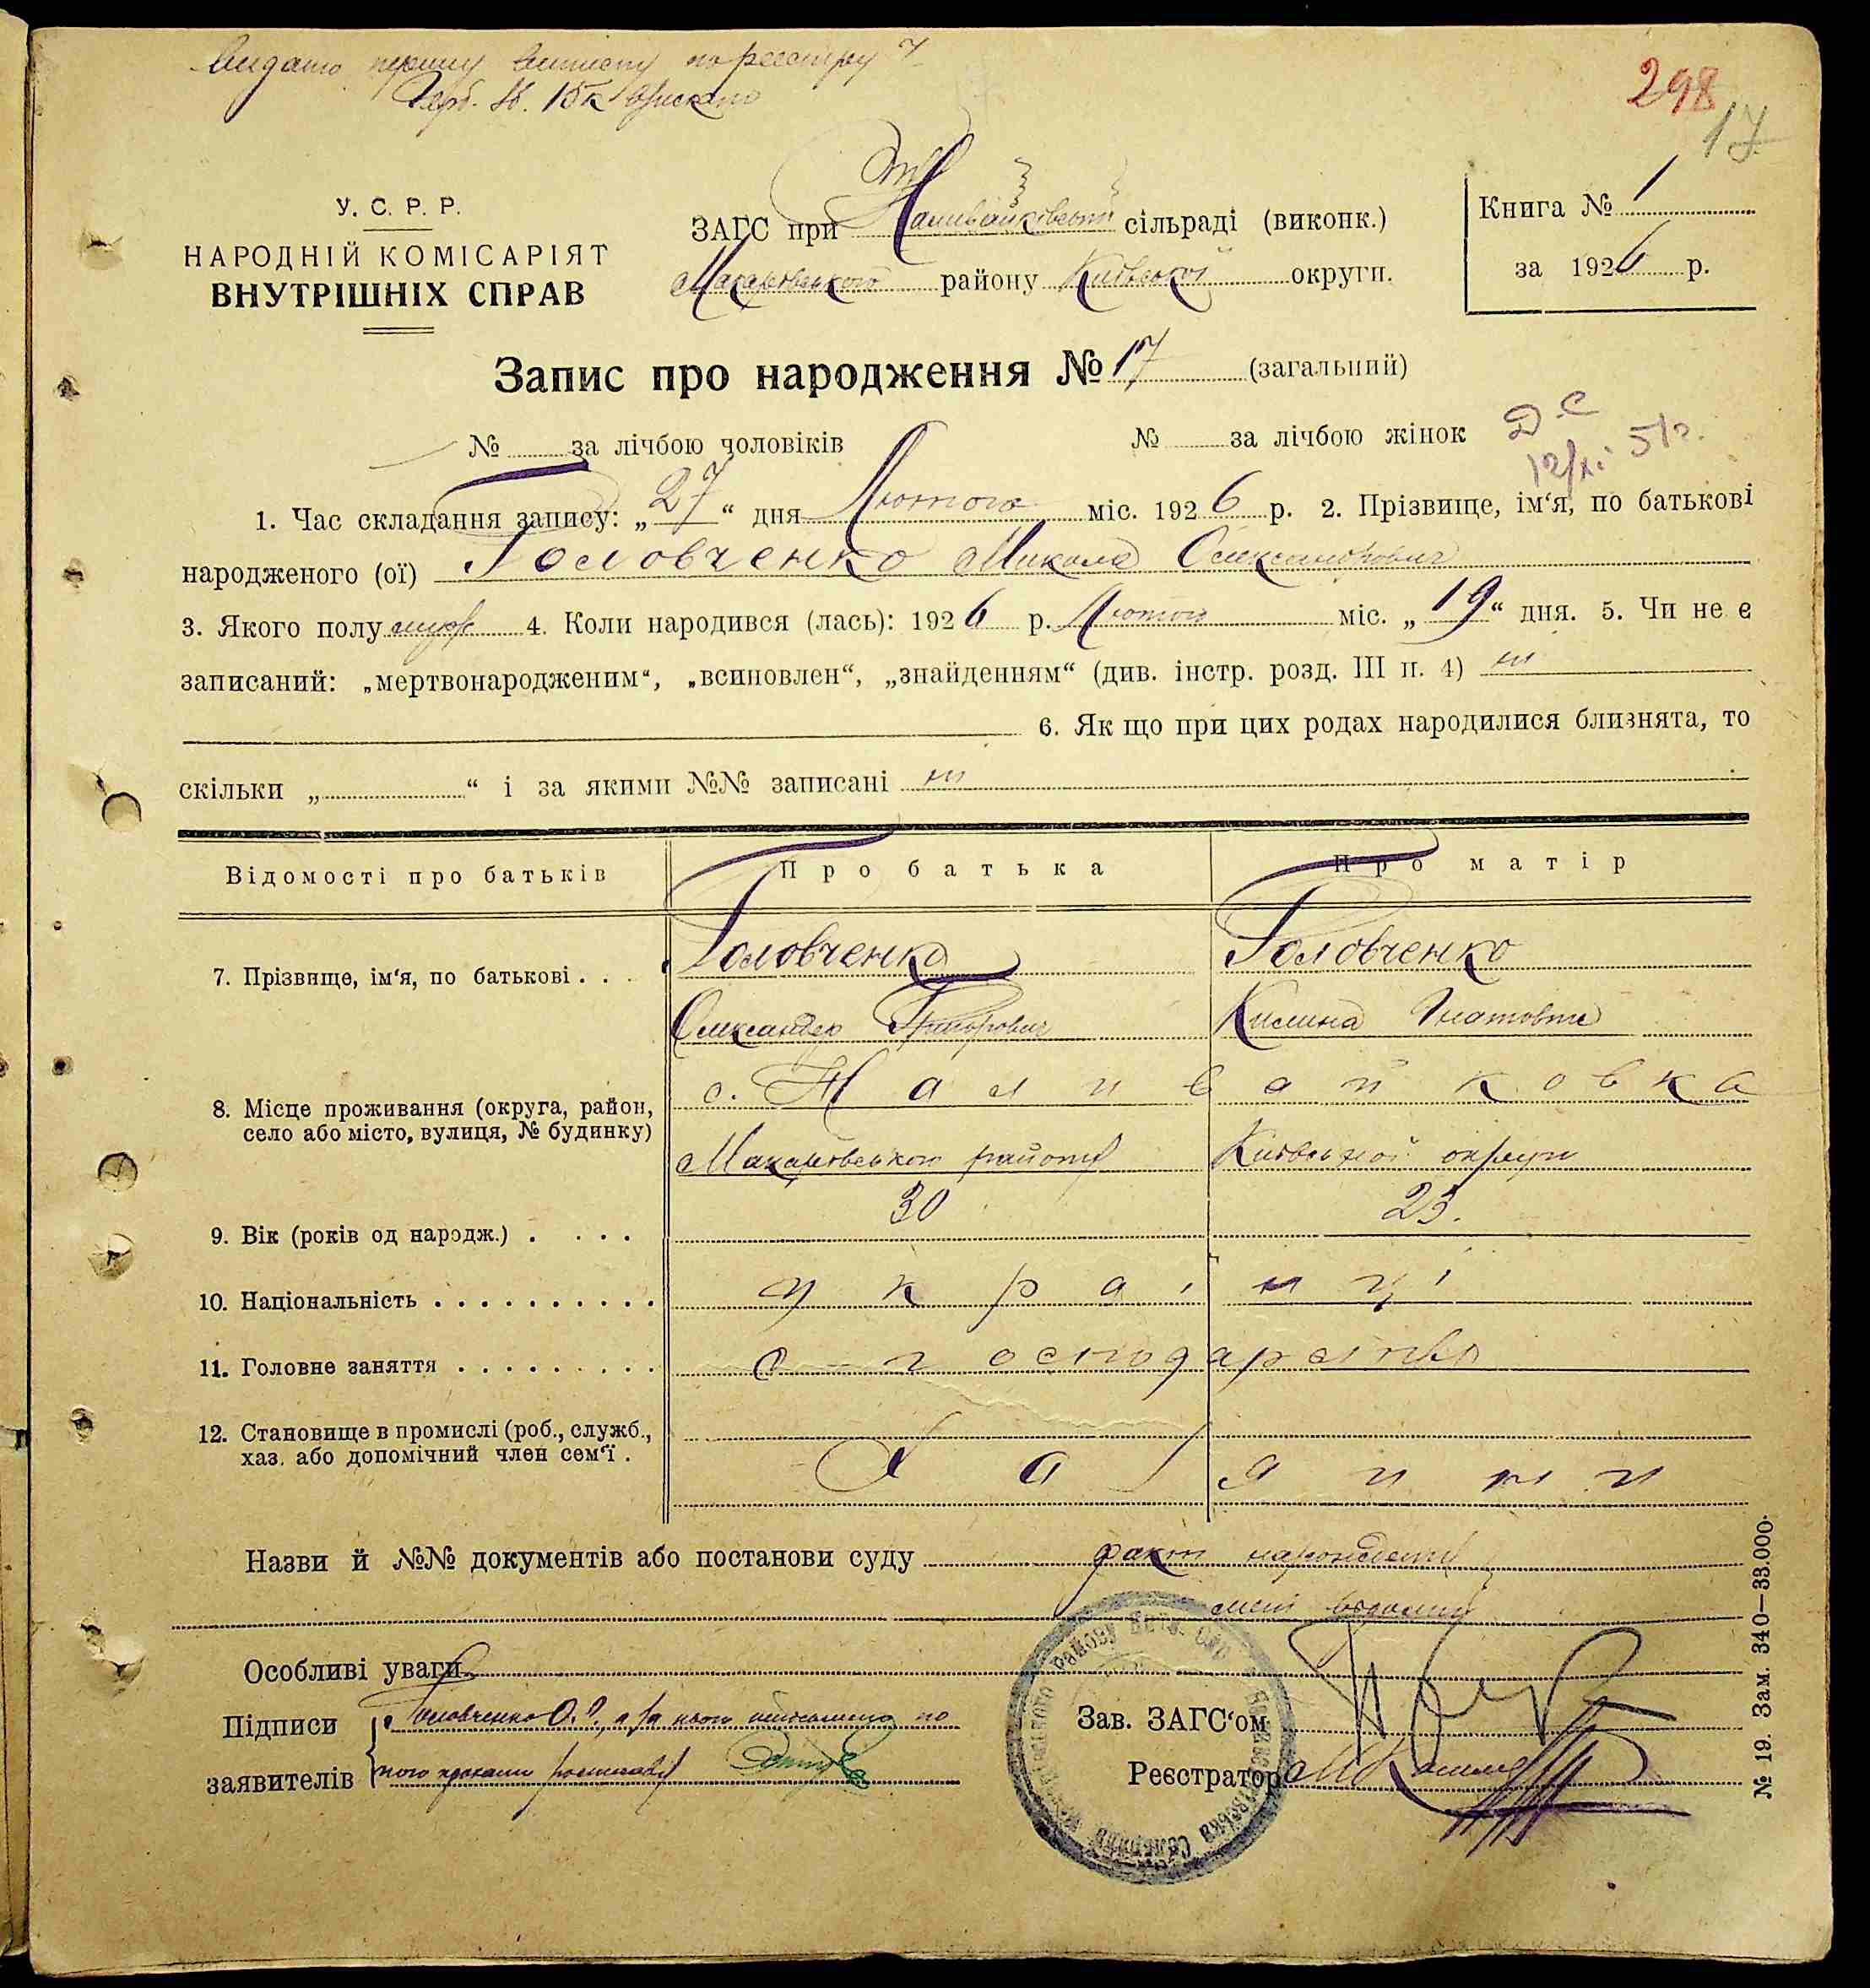 Видано першу виписку по реестру 7
Герб. зб. 15 к взискано
298
17
У. С. Р. Р.
НАРОДНІЙ КОМІСАРІЯТ
ВНУТРІШНІХ СПРАВ
ЗАГС при Наливайківській сільраді (виконк.)
Макарівського району Київської округи.
Книга № 1
за 1926 р.
Запис про народження № 17 (загальний)
№ за лічбою чоловіків № за лічбою жінок
12/XI 51 г.
1. Час складання запису: „27“ дня Лютого міс. 1926 р. 2. Прізвище, ім‘я, по батькові
народженого (ої) Головченко Микола Олександрович
3. Якого полу муж 4. Коли народився (лась): 1926 р. Лютого міс. „19“ дня. 5. Чи не є
записаний: „мертвонародженим“, „всиновлен“, „знайденням“ (див. інстр. розд. III п. 4) ні
6. Як що при цих родах народилися близнята, то
скільки „ “ і за якими №№ записані ні
Відомості про батьків Про батька Про матір
7. Прізвище, ім‘я, по батькові . . . Головченко Головченко
Олександер Григорович Килина Гнатовна
8. Місце проживання (округа, район, с. Наливайковка
село або місто, вулиця, № будинку) Макарівського району Київської округи
9. Вік (років од народж.) . . . . 30 23.
10. Національність . . . . . . . . . . . українці
11. Головне заняття . . . . . . . . . с-господарство
12. Становище в промислі (роб., служб.,
хаз. або допомічний член сем‘ї . Хазяини
Назви й №№ документів або постанови суду факт народження
мені відомий
Особливі уваги
Підписи Головченко О. Г., а за нього неписьмено по
заявителів його прохани росписавсь
Зав. ЗАГС‘ом
Реєстратор
№ 19. Зам. 340—33.000.